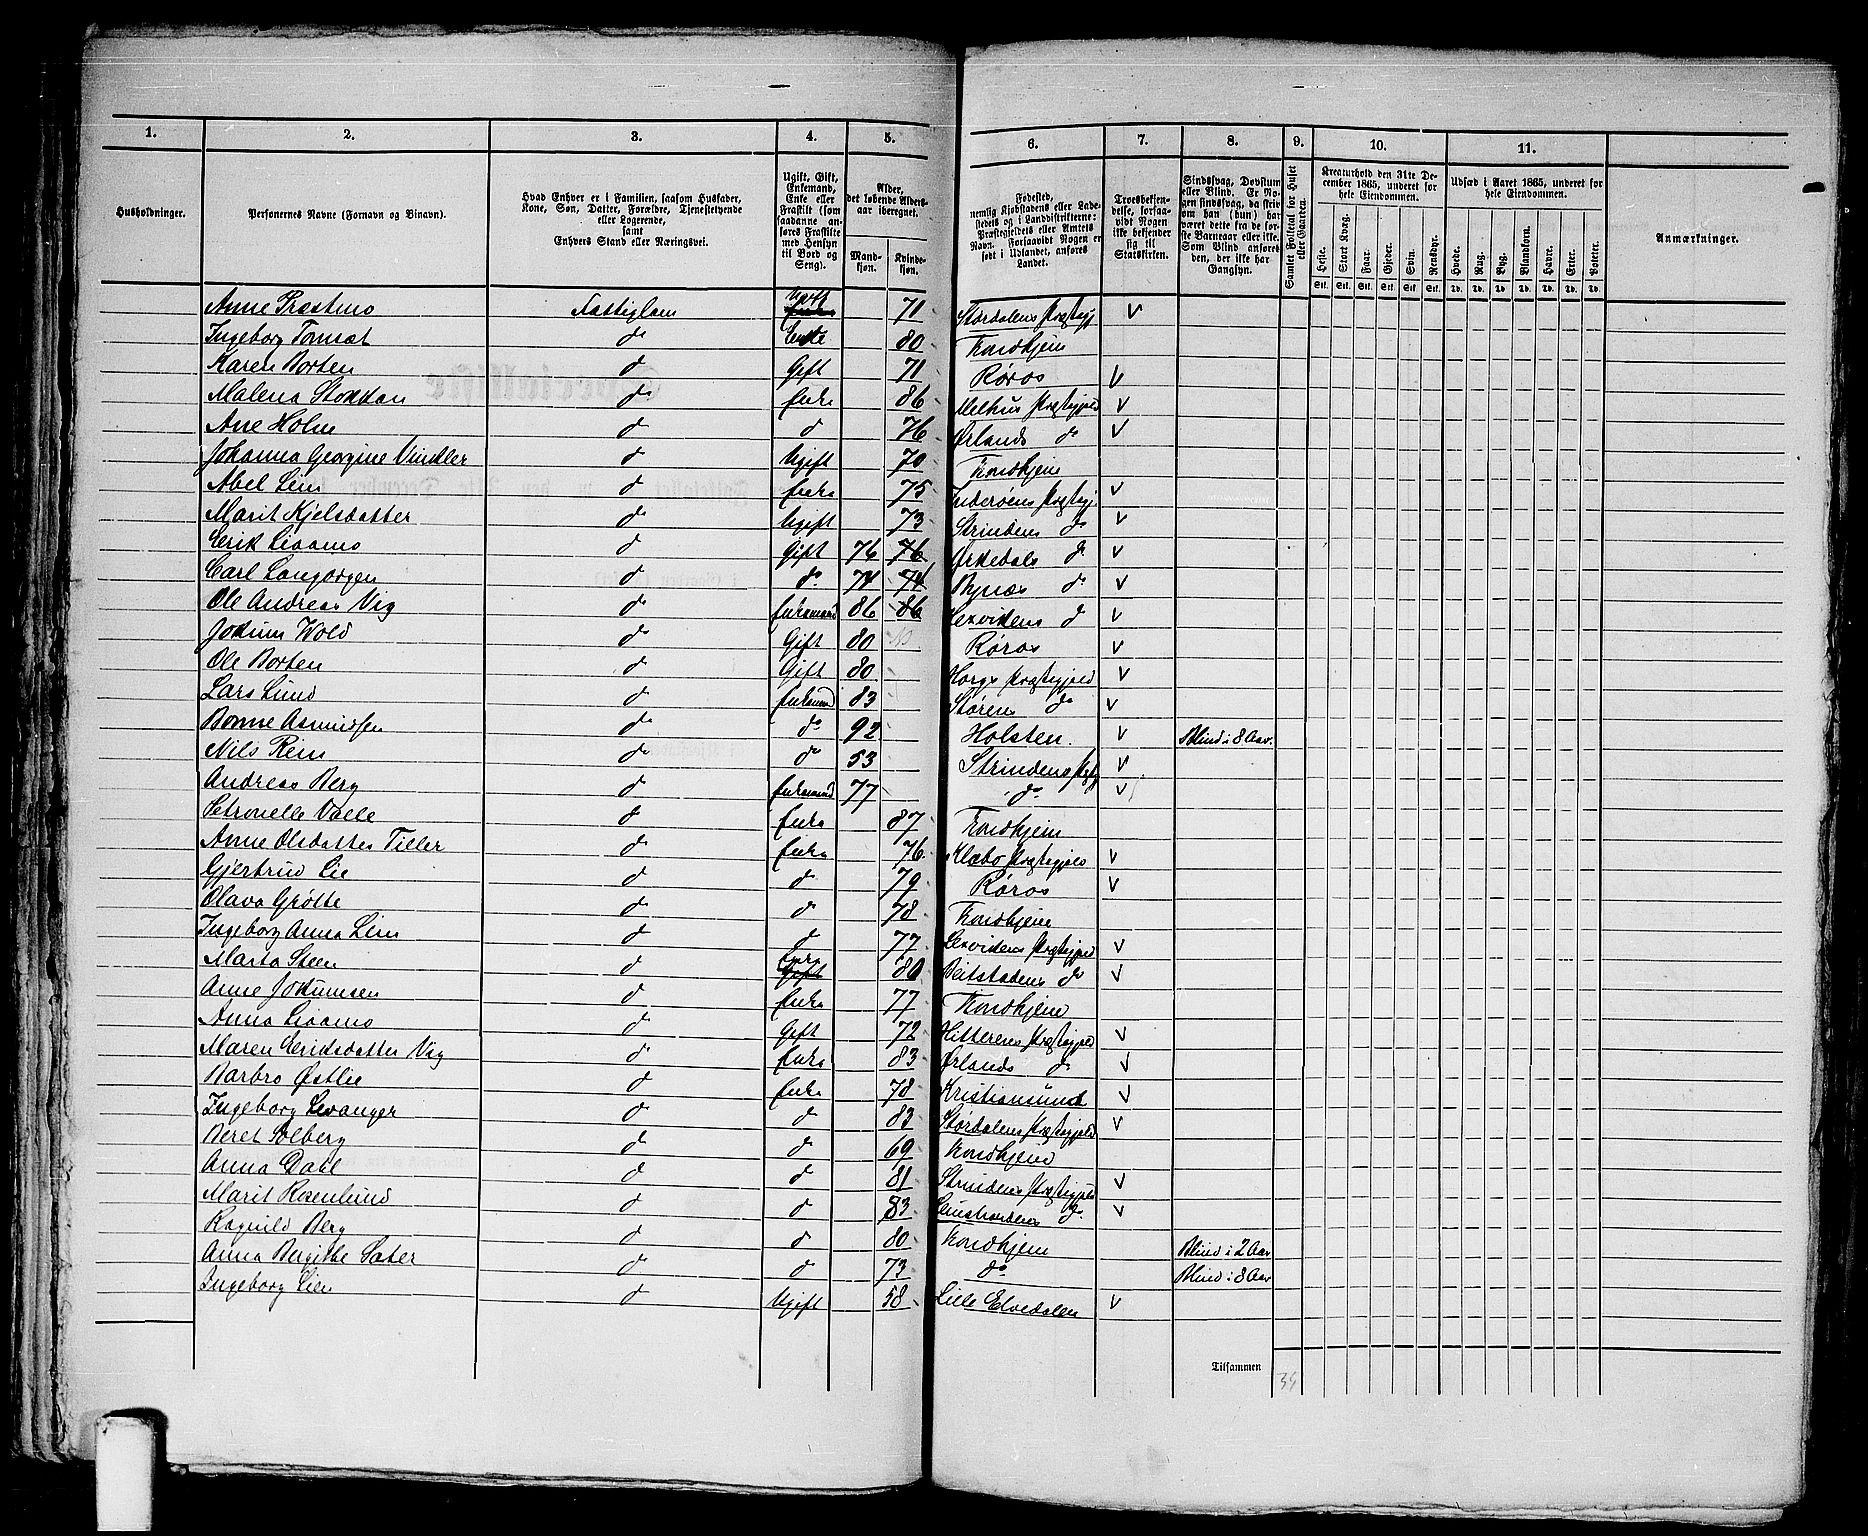 1. 2. 3. 4. 5. 6. 7. 8. 9. 10. 11.
Husholdninger.
Personernes Navne (Fornavn og Binavn).
Hvad Enhver er i Familien, saasom Husfader, Kone, Søn, Datter, Forældre, Tjenestetyende eller Logerende, samt Enhvers Stand eller Næringsvei.
Ugift, Gift, Enkemand, Enke eller Fraskilt (som saadanne anføres Fraskilte med Hensyn til Bord og Seng).
Alder, det løbende Aldersaar iberegnet.
Mandkjøn. Kvindekjøn.
Fødested, nemlig Kjøbstadens eller Ladestedets og i Landdistrikterne: Præstegjeldets eller Amtets Navn. Forsaavidt Nogen er født i Udlandet, anføres Landet.
Troesbekjendelse, forsaavidt Nogen ikke bekjender sig til Statskirken.
Sindssvag, Døvstum eller Blind. Er Nogen sindssvag, da skriv om han (hun) har været dette fra de første Barneaar eller ikke. Som Blind anføres den, der ikke har Gangsyn.
Samlet Folketal for Huset eller Gaarden.
Kreaturhold den 31te December 1865, underet for hele Eiendommen.
Heste. Stort Kvæg. Faar. Gjeder. Svin. Rensdyr.
Udsæd i Aaret 1865, underet for hele Eiendommen.
Hvede. Rug. Byg. Blandkorn. Havre. Erter. Poteter.
Anmærkninger.
Stk. Stk. Stk. Stk. Stk. Stk. Td. Td. Td. Td. Td. Td. Td.
Anne Præstmo Fattiglem Ugift 71 Størdalens Præstegj v
Ingeborg Tomsæt do Enke 80 Trondhjem
Karen Borten do Gift 71 Røros v
Malena Stokkan do Enke 86 Melhus Præstegjeld v
Ane Holm do do 76 Ørlands do v
Johanna Georgine Vindler do Ugift 70 Trondhjem
Abel Lein do Enke 75 Inderøens Præstegj. v
Marit Kjelsdatter do Ugift 73 Strindens do v
Erik Liaamo do Gift 76 76 Ørkedals do v
Carl Langørgen do do 74 74 Bynæs do v
Ole Andreas Vig do Enkemand 86 86 Lexvikens do v
Jokum Wold do Gift 80 Røros v
Ole Borten do Gift 80 Horgs Præstegjeld v
Lars Lund do Enkemand 83 Støren do v
Bonne Asmundsen do do 92 Holsten. v Blind i 8 Aar.
Nils Rein do do 53 Strindens Præstg v
Andreas Berg do Enkemand 77 do v
Petronelle Valle do Enke 87 Trondhjem
Anne Olsdatter Tiller do Enke 76 Klæbo Præstegjeld v
Gjertrud Lie do do 79 Røros v
Olava Grøtte do do 78 Trondhjem
Ingeborg Anna Lein do do 77 Lexvikens Præstegjeld v
Marta Steen do Enke Gift 80 Beitstadens do v
Anne Jokumsen do Enke 77 Trondhjem
Anna Liaamo do Gift 72 Hitterens Præstegjeld v
Maren Eriksdatter Vig do Enke 83 Ørlands do v
Marbro Østlie do Enke 78 Kristiansund v
Ingeborg Levanger do do 83 Størdalens Præstegjeld v
Beret Solberg do do 69 Trondhjem
Anna Dahl do do 81 Strindens Præstegjeld v
Marit Rosenlund do do 83 Leinstrandens do v
Ragnild Berg do do 80 Trondhjem Blind i 2 Aar
Anna Bergitte Sæter do do 73 do Blind i 8 Aar
Ingeborg Lien do Ugift 58 Lille Elvedalen v
Tilsammen 34